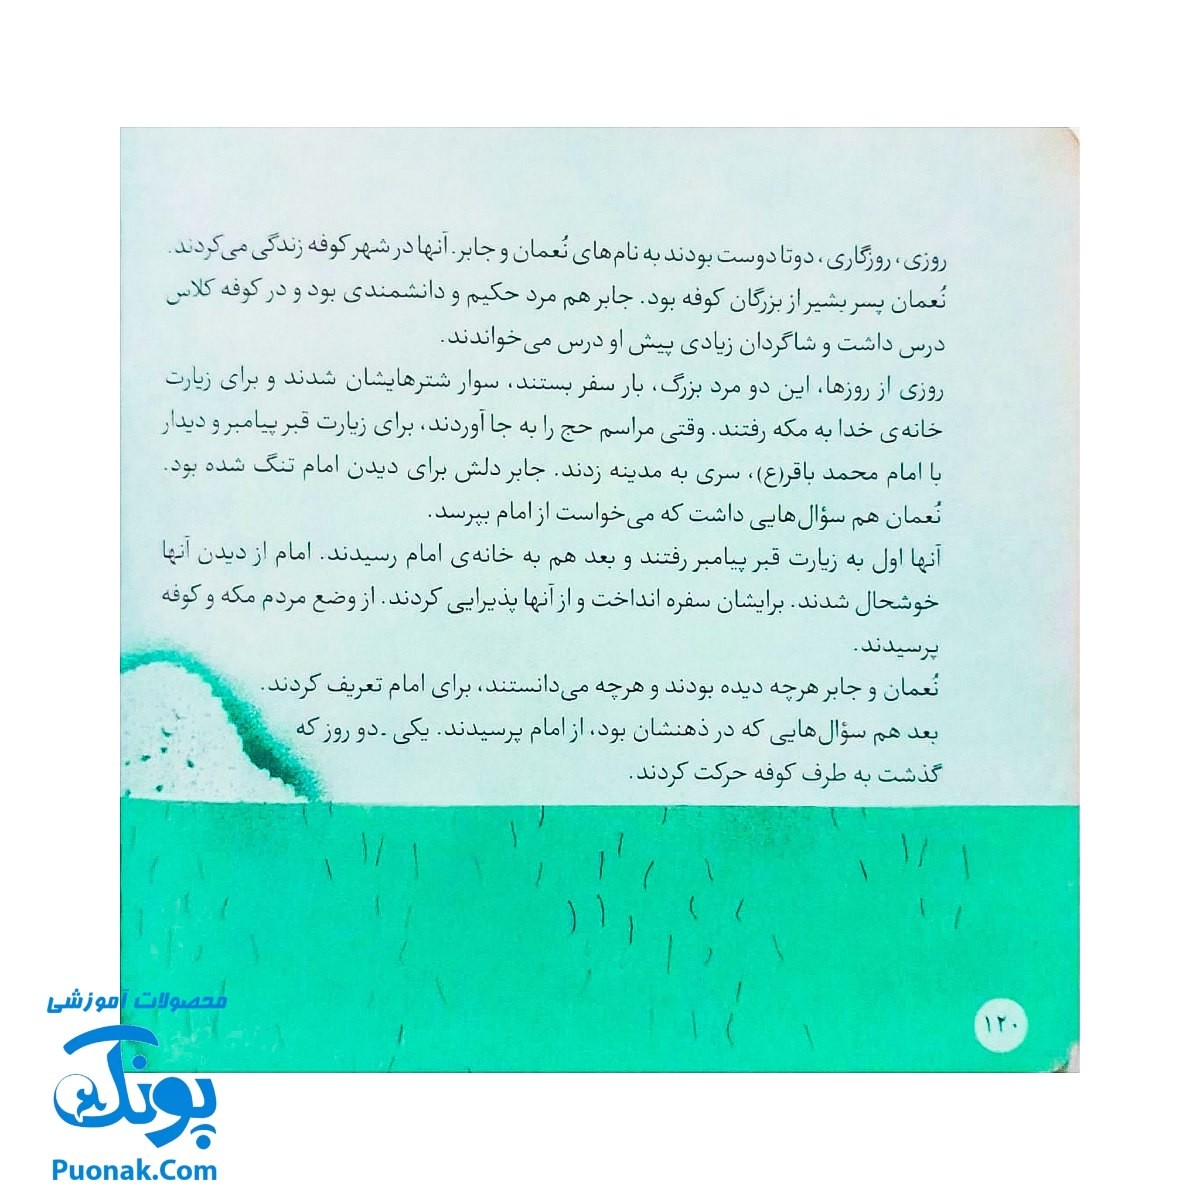 روزی، روزگاری، دوتا دوست بودند به نام‌های نُعمان و جابر. آنها در شهر کوفه زندگی می‌کردند.
نُعمان پسر بشیر از بزرگان کوفه بود. جابر هم مرد حکیم و دانشمندی بود و در کوفه کلاس
درس داشت و شاگردان زیادی پیش او درس می‌خواندند.
روزی از روزها، این دو مرد بزرگ، بار سفر بستند، سوار شترهایشان شدند و برای زیارت
خانه‌ی خدا به مکه رفتند. وقتی مراسم حج را به جا آوردند، برای زیارت قبر پیامبر و دیدار
با امام محمد باقر(ع)، سری به مدینه زدند. جابر دلش برای دیدن امام تنگ شده بود.
نُعمان هم سؤال‌هایی داشت که می‌خواست از امام بپرسد.
آنها اول به زیارت قبر پیامبر رفتند و بعد هم به خانه‌ی امام رسیدند. امام از دیدن آنها
خوشحال شدند. برایشان سفره انداخت و از آنها پذیرایی کردند. از وضع مردم مکه و کوفه
پرسیدند.
نُعمان و جابر هرچه دیده بودند و هرچه می‌دانستند، برای امام تعریف کردند.
بعد هم سؤال‌هایی که در ذهنشان بود، از امام پرسیدند. یکی ـ دو روز که
گذشت به طرف کوفه حرکت کردند.
۱۲۰
محصولات آموزشی
پونک
Puonak.Com